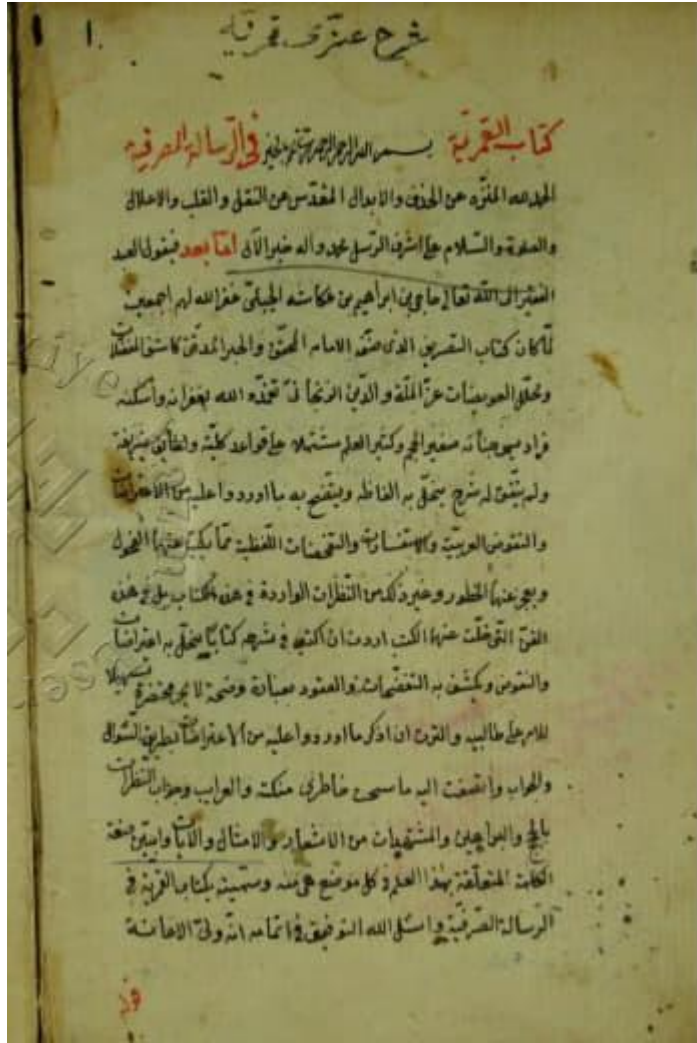 شرح عزى قمرية
١
كتاب القمرية بسم الله الرحمن الرحيم وتمم بالخير في الرسالة الصرفية
الحمد لله المنزه عن الحذف والابدال المقدس عن النقل والقلب والاعلال
والصلوة والسلام على اشرف الرسل محمد وآله خير الآل اما بعد فيقول العبد
الفقير الى الله تعالى حاجى بن ابراهيم بن عكاشه الجبلى غفر الله لهم اجمعين
لما كان كتاب التصريف الذى صنفه الامام المحقق والحبر المدقق كاشف المعضلات
ومحلل العويصات عز الملة والدين الزنجانى تغمده الله بغفرانه واسكنه
فراديس جنانه صغير الحجم وكثير العلم مشتملا على قواعد كلية ولطائف شريفة
ولم يتفق له شرح ينحل به الفاظه ويتضح به ما اوردوا عليه من الاعتراضات
والنقوض العربية والاستفسارات اللفظية مما يكب عنها الفحول
عنها وغير ذلك من النظرات الواردة فى هذه الكتاب بل فى هذه
الفن التى خلت عنها الكتب اردت ان اكتب فى شرحه كتابا ينحل به اعتراضات
والنقوض ويكشف به والعقود بعبارة وضحة لا بمختصرة تسهيلا
للامر على طالبيه والتزمت ان اذكر ما اوردوا عليه من الاعتراضات بطريق السؤال
والجواب واضفت اليه ما سمح خاطرى منكتة والغرايب وجواب النظرات
والبراهين والمشتهيات من الاشعار والامثال والآيات وابين صفة
الكلمة المتعلقة بهذا العلم فى كل موضع هى منه وسميته بكتاب القمرية فى
الرسالة الصرفية واسئل الله التوفيق فى اتمامه انه ولى الاعانة